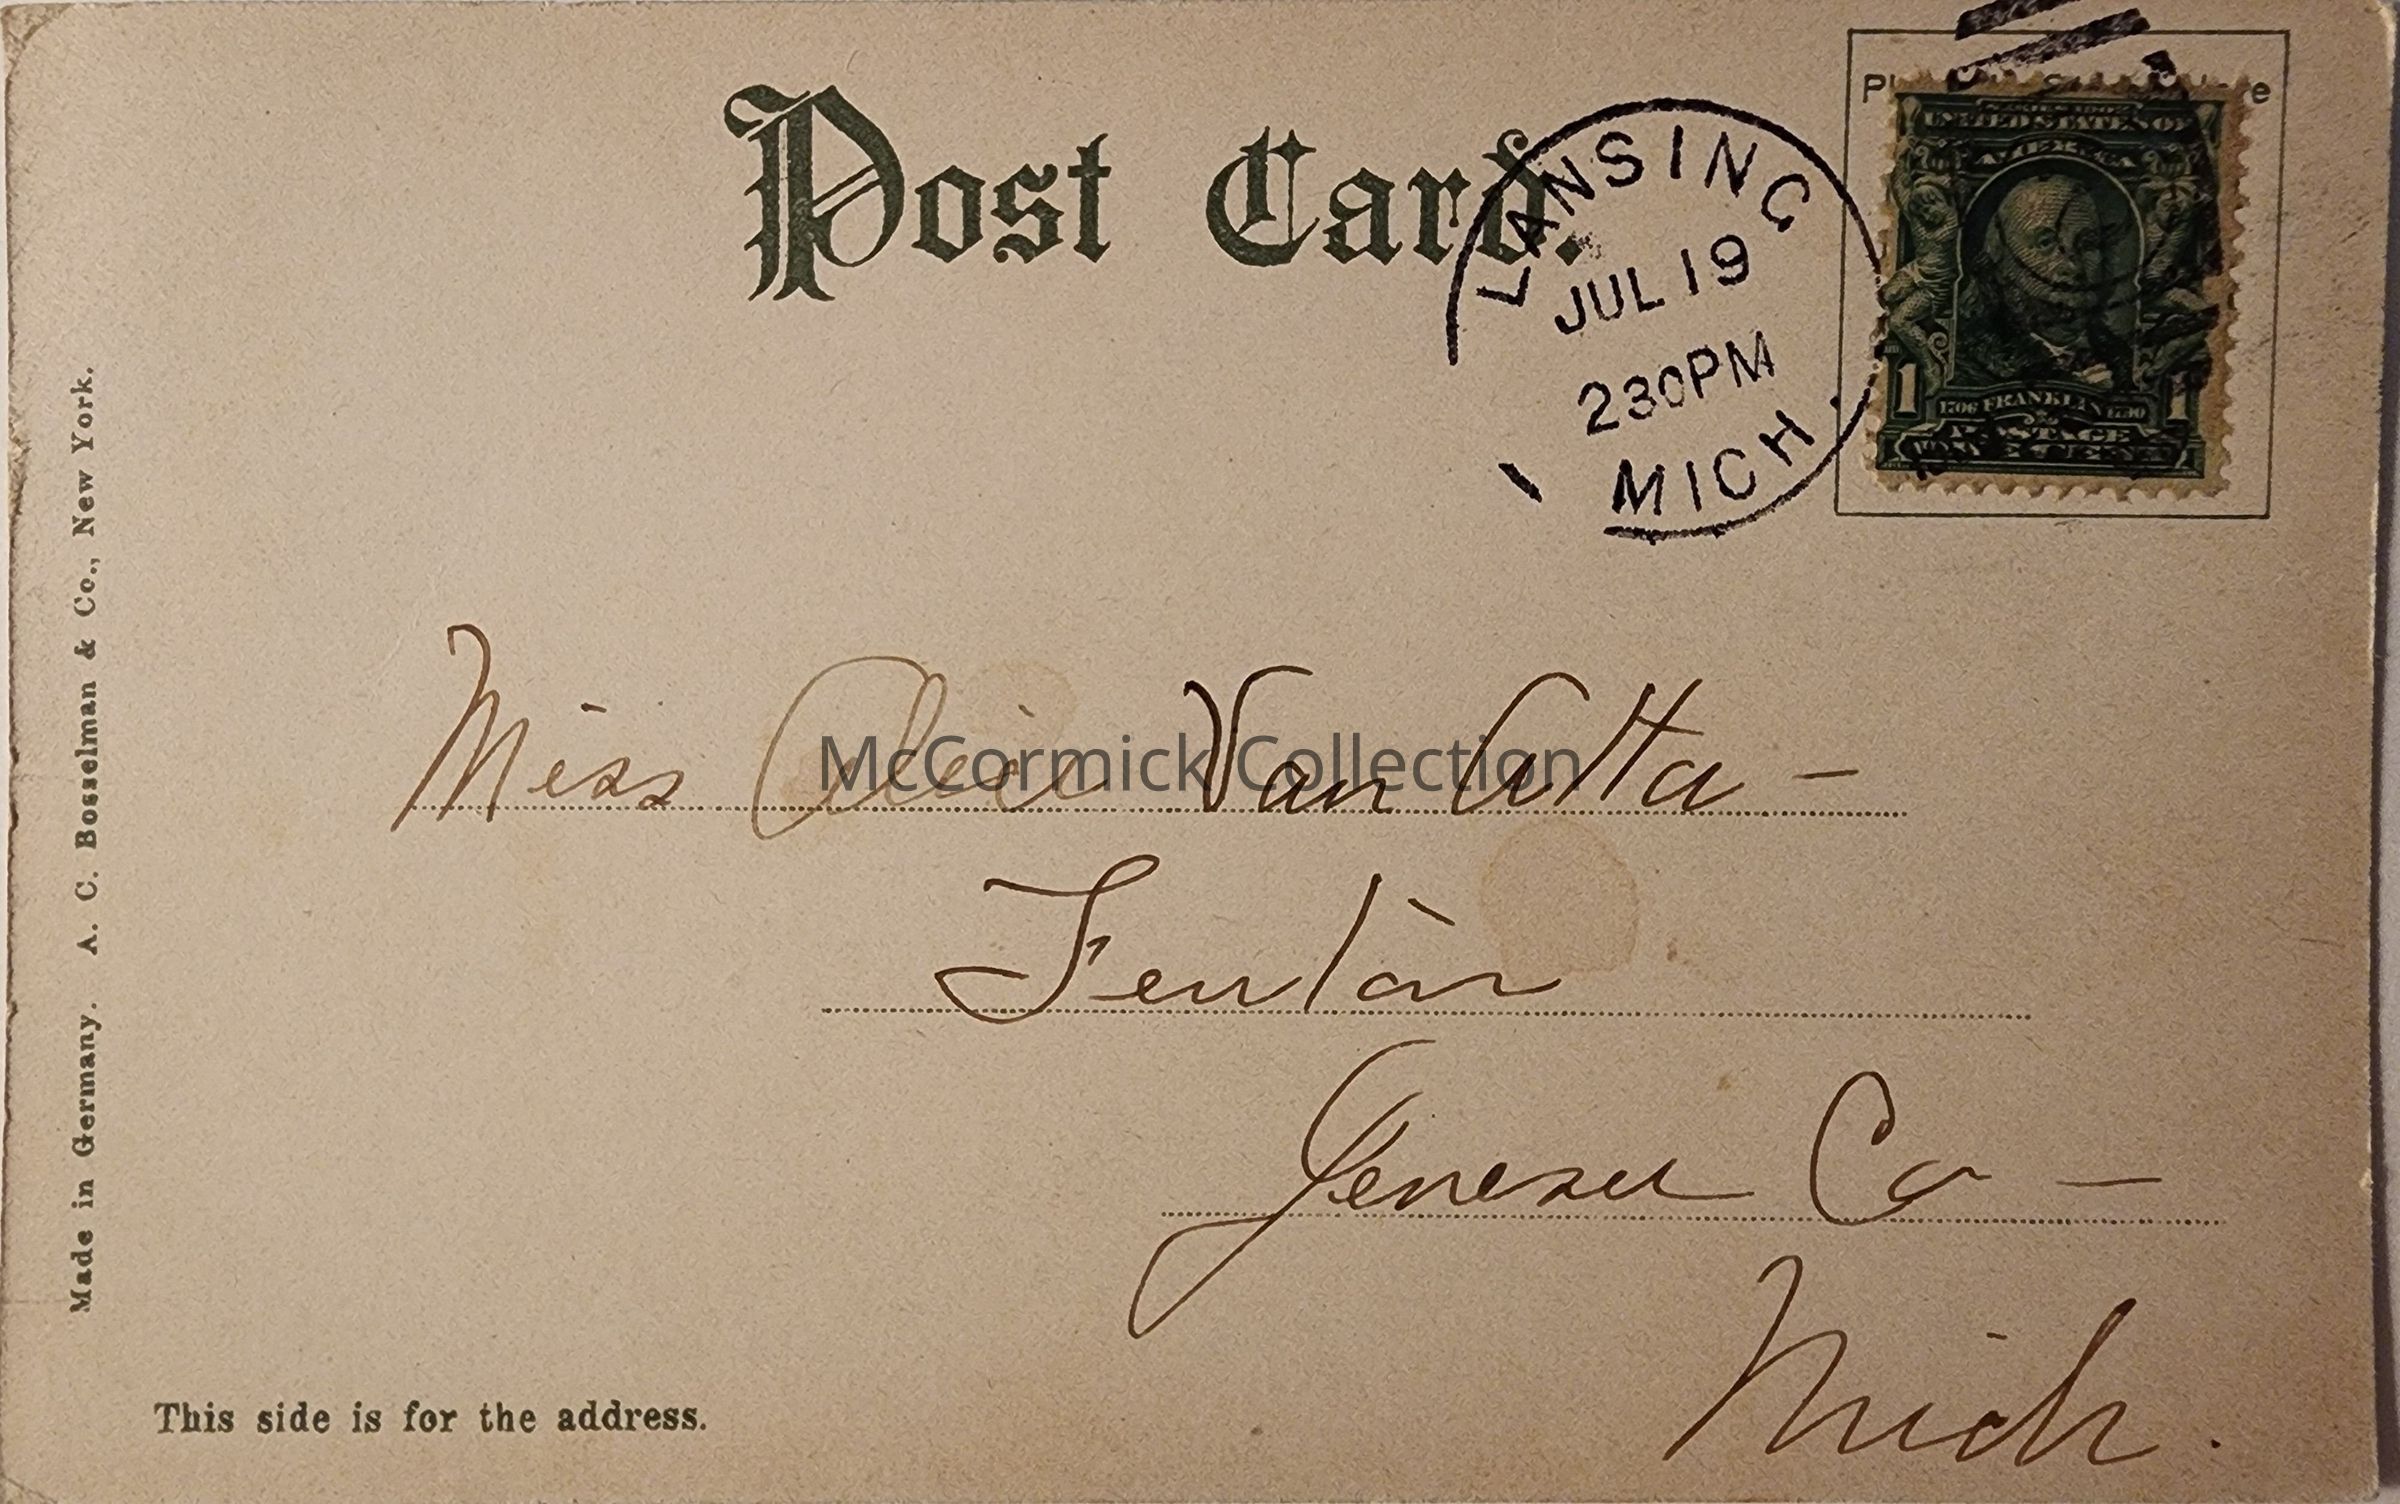 Post Card.
LANSING
JUL 19
230PM
MICH.
UNITED STATES OF
AMERICA
1 1706 FRANKLIN 1790 1
POSTAGE
Miss Alice Van Atta —
McCormick Collection
Fenton
Genesee Co —
Mich.
Made in Germany. A. C. Bosselman & Co., New York.
This side is for the address.